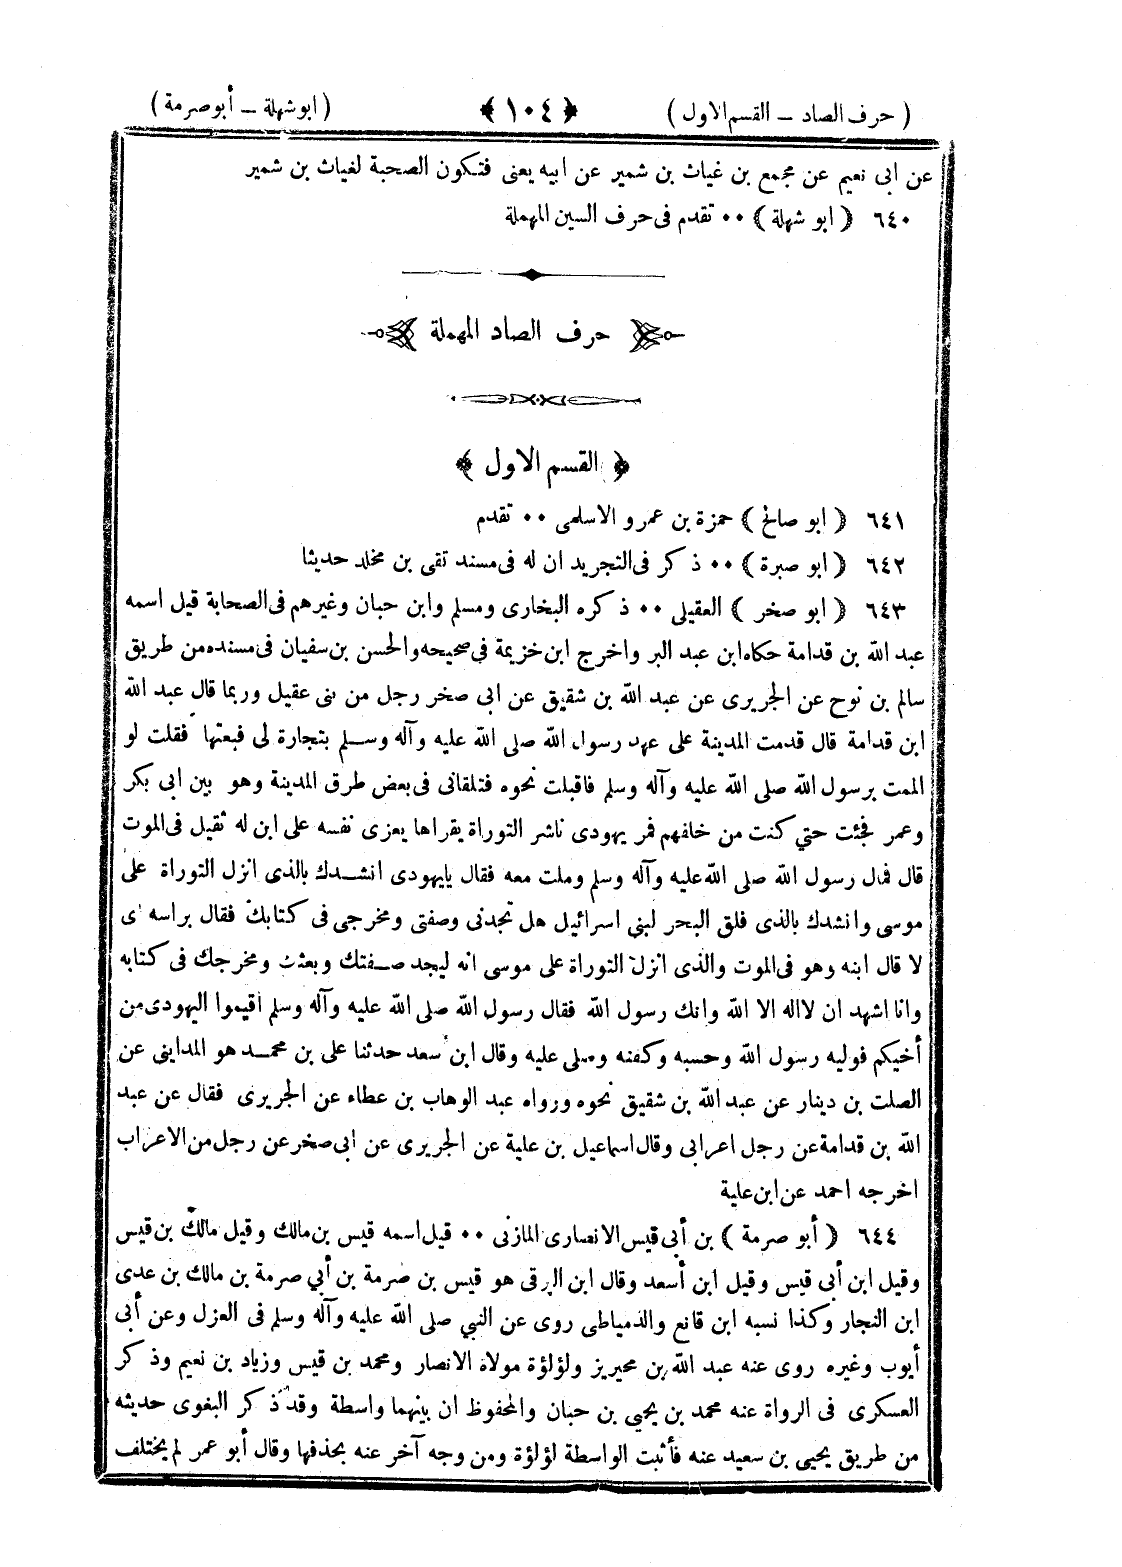 ( حرف الصاد – القسم الاول ) ﴿ ١٠٤ ﴾ ( ابو شهلة – أبو صرمة )
عن ابى نعيم عن مجمع بن غياث بن شمير عن ابيه يعنى فتكون الصحبة لغياث بن شمير
٦٤٠ ﴿ ابو شهلة ﴾ ٠٠ تقدم فى حرف السين المهملة
حرف الصاد المهملة
﴿ القسم الاول ﴾
٦٤١ ﴿ ابو صالح ﴾ حمزة بن عمرو الاسلمى ٠٠ تقدم
٦٤٢ ﴿ ابو صبرة ﴾ ٠٠ ذكر فى التجريد ان له فى مسند تقى بن مخلد حديثا
٦٤٣ ﴿ ابو صخر ﴾ العقيلى ٠٠ ذكره البخارى ومسلم وابن حبان وغيرهم فى الصحابة قيل اسمه
عبد الله بن قدامة حكاه ابن عبد البر واخرج ابن خزيمة فى صحيحه والحسن بن سفيان فى مسنده من طريق
سالم بن نوح عن الجريرى عن عبد الله بن شقيق عن ابى صخر رجل من بنى عقيل وربما قال عبد الله
ابن قدامة قال قدمت المدينة على عهد رسول الله صلى الله عليه وآله وسلم بتجارة لى فبعتها فقلت لو
الممت برسول الله صلى الله عليه وآله وسلم فاقبلت نحوه فتلقانى فى بعض طرق المدينة وهو بين ابى بكر
وعمر فجئت حتي كنت من خلفهم فمر يهودى ناشر التوراة يقراها يعزى نفسه على ابن له ثقيل فى الموت
قال فمال رسول الله صلى الله عليه وآله وسلم وملت معه فقال يايهودى انشدك بالذى انزل التوراة على
موسى وانشدك بالذى فلق البحر لبني اسرائيل هل تجدنى وصفتى ومخرجى فى كتابك فقال براسه اى
لا قال ابنه وهو فى الموت والذى انزل التوراة على موسى انه ليجد صفتك وبعثك ومخرجك فى كتابه
وانا اشهد ان لااله الا الله وانك رسول الله فقال رسول الله صلى الله عليه وآله وسلم اقيموا اليهودى من
أخيكم فوليه رسول الله وحسبه وكفنه وصلى عليه وقال ابن سعد حدثنا على بن محمد هو المداينى عن
الصلت بن دينار عن عبد الله بن شقيق نحوه ورواه عبد الوهاب بن عطاء عن الجريرى فقال عن عبد
الله بن قدامة عن رجل اعرابى وقال اسماعيل بن علية عن الجريرى عن ابى صخر عن رجل من الاعراب
اخرجه احمد عن ابن علية
٦٤٤ ﴿ أبو صرمة ﴾ بن أبى قيس الانصارى المازنى ٠٠ قيل اسمه قيس بن مالك وقيل مالك بن قيس
وقيل ابن أبى قيس وقيل ابن أسعد وقال ابن البرقى هو قيس بن صرمة بن أبي صرمة بن مالك بن عدى
ابن النجار وكذا نسبه ابن قانع والدمياطى روى عن النبي صلى الله عليه وآله وسلم فى العزل وعن أبى
أيوب وغيره روى عنه عبد الله بن محيريز ولؤلؤة مولاة الانصار ومحمد بن قيس وزياد بن نعيم وذكر
العسكرى فى الرواة عنه محمد بن يحيى بن حبان والمحفوظ ان بينهما واسطة وقد ذكر البغوى حديثه
من طريق يحيى بن سعيد عنه فأثبت الواسطة لؤلؤة ومن وجه آخر عنه بحذفها وقال أبو عمر لم يختلف